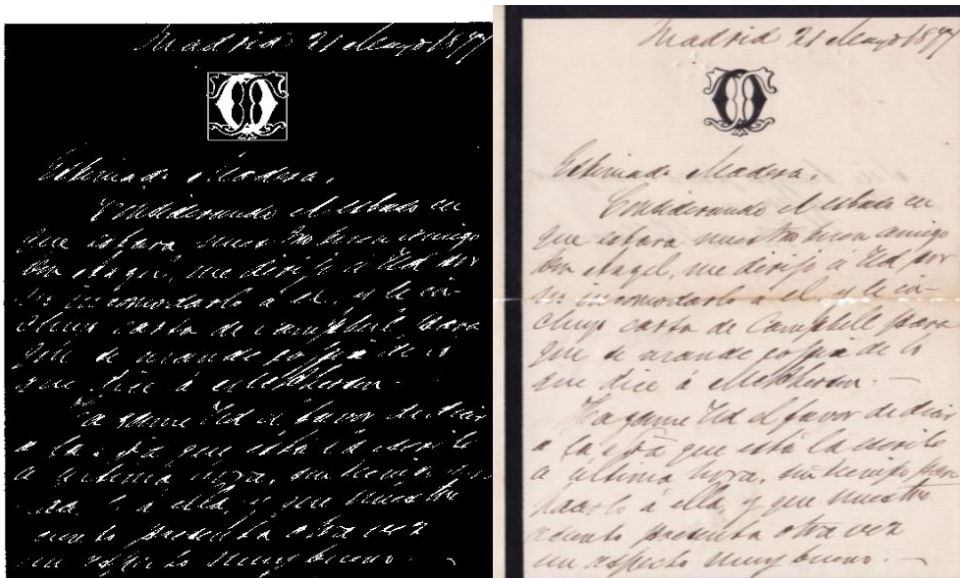 Madrid 21 Mayo 1897
Estimado Madera,
Considerando el estado en
que estara nuestro buen amigo
Don Angel, me dirijo a Ud por
no incomodarlo á el y le in-
cluyo carta de Campbell para
que se mande copia de lo
que dice á
Hagame Ud el favor de decir
a la que está la escribo
a última hora, sin tiempo para
hacerlo á ella, y que nuestro
asunto presenta otra vez
un aspecto muy bueno. —
Madrid 21 Mayo 1897
Estimado Madera,
Considerando el estado en
que estara nuestro buen amigo
Don Angel, me dirijo a Ud por
no incomodarlo á el y le in-
cluyo carta de Campbell para
que se mande copia de lo
que dice á
Hagame Ud el favor de decir
a la que está la escribo
a última hora, sin tiempo para
hacerlo á ella, y que nuestro
asunto presenta otra vez
un aspecto muy bueno. —